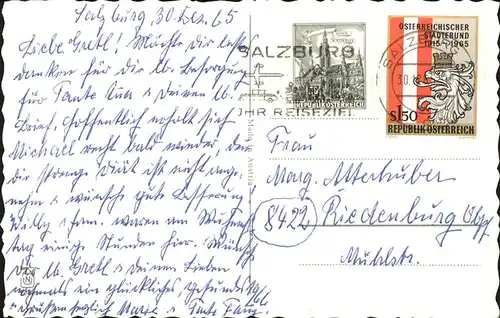 Salzburg, 30. Dez. 65
Liebe Gretl! Möchte dir bests
danken für die lb. Besorgung
für Tante u Deinen lb.
Brief, hoffentlich erholt sich
Michael recht bald wieder, denn
die strenge Diät ist nicht ange-
nehm u wünsche gute Besserung
Willy u Fam. waren am Weihnachts
tag einige Stunden hier. Wünsche
Dir lb. Gretl u deinen Lieben
nochmals ein glückliches, gesundes 1966
u grüssen herzlich u Tante Fanny
SALZBURG
IHR REISEZIEL
REPUBLIK ÖSTERREICH
ÖSTERREICHISCHER
STÄDTEBUND
1915-1965
S 1.50
REPUBLIK ÖSTERREICH
SALZ
30.
Made in Austria
Frau
Marg. Atterhuber
8422 Riedenburg Opf
Mühlstr.